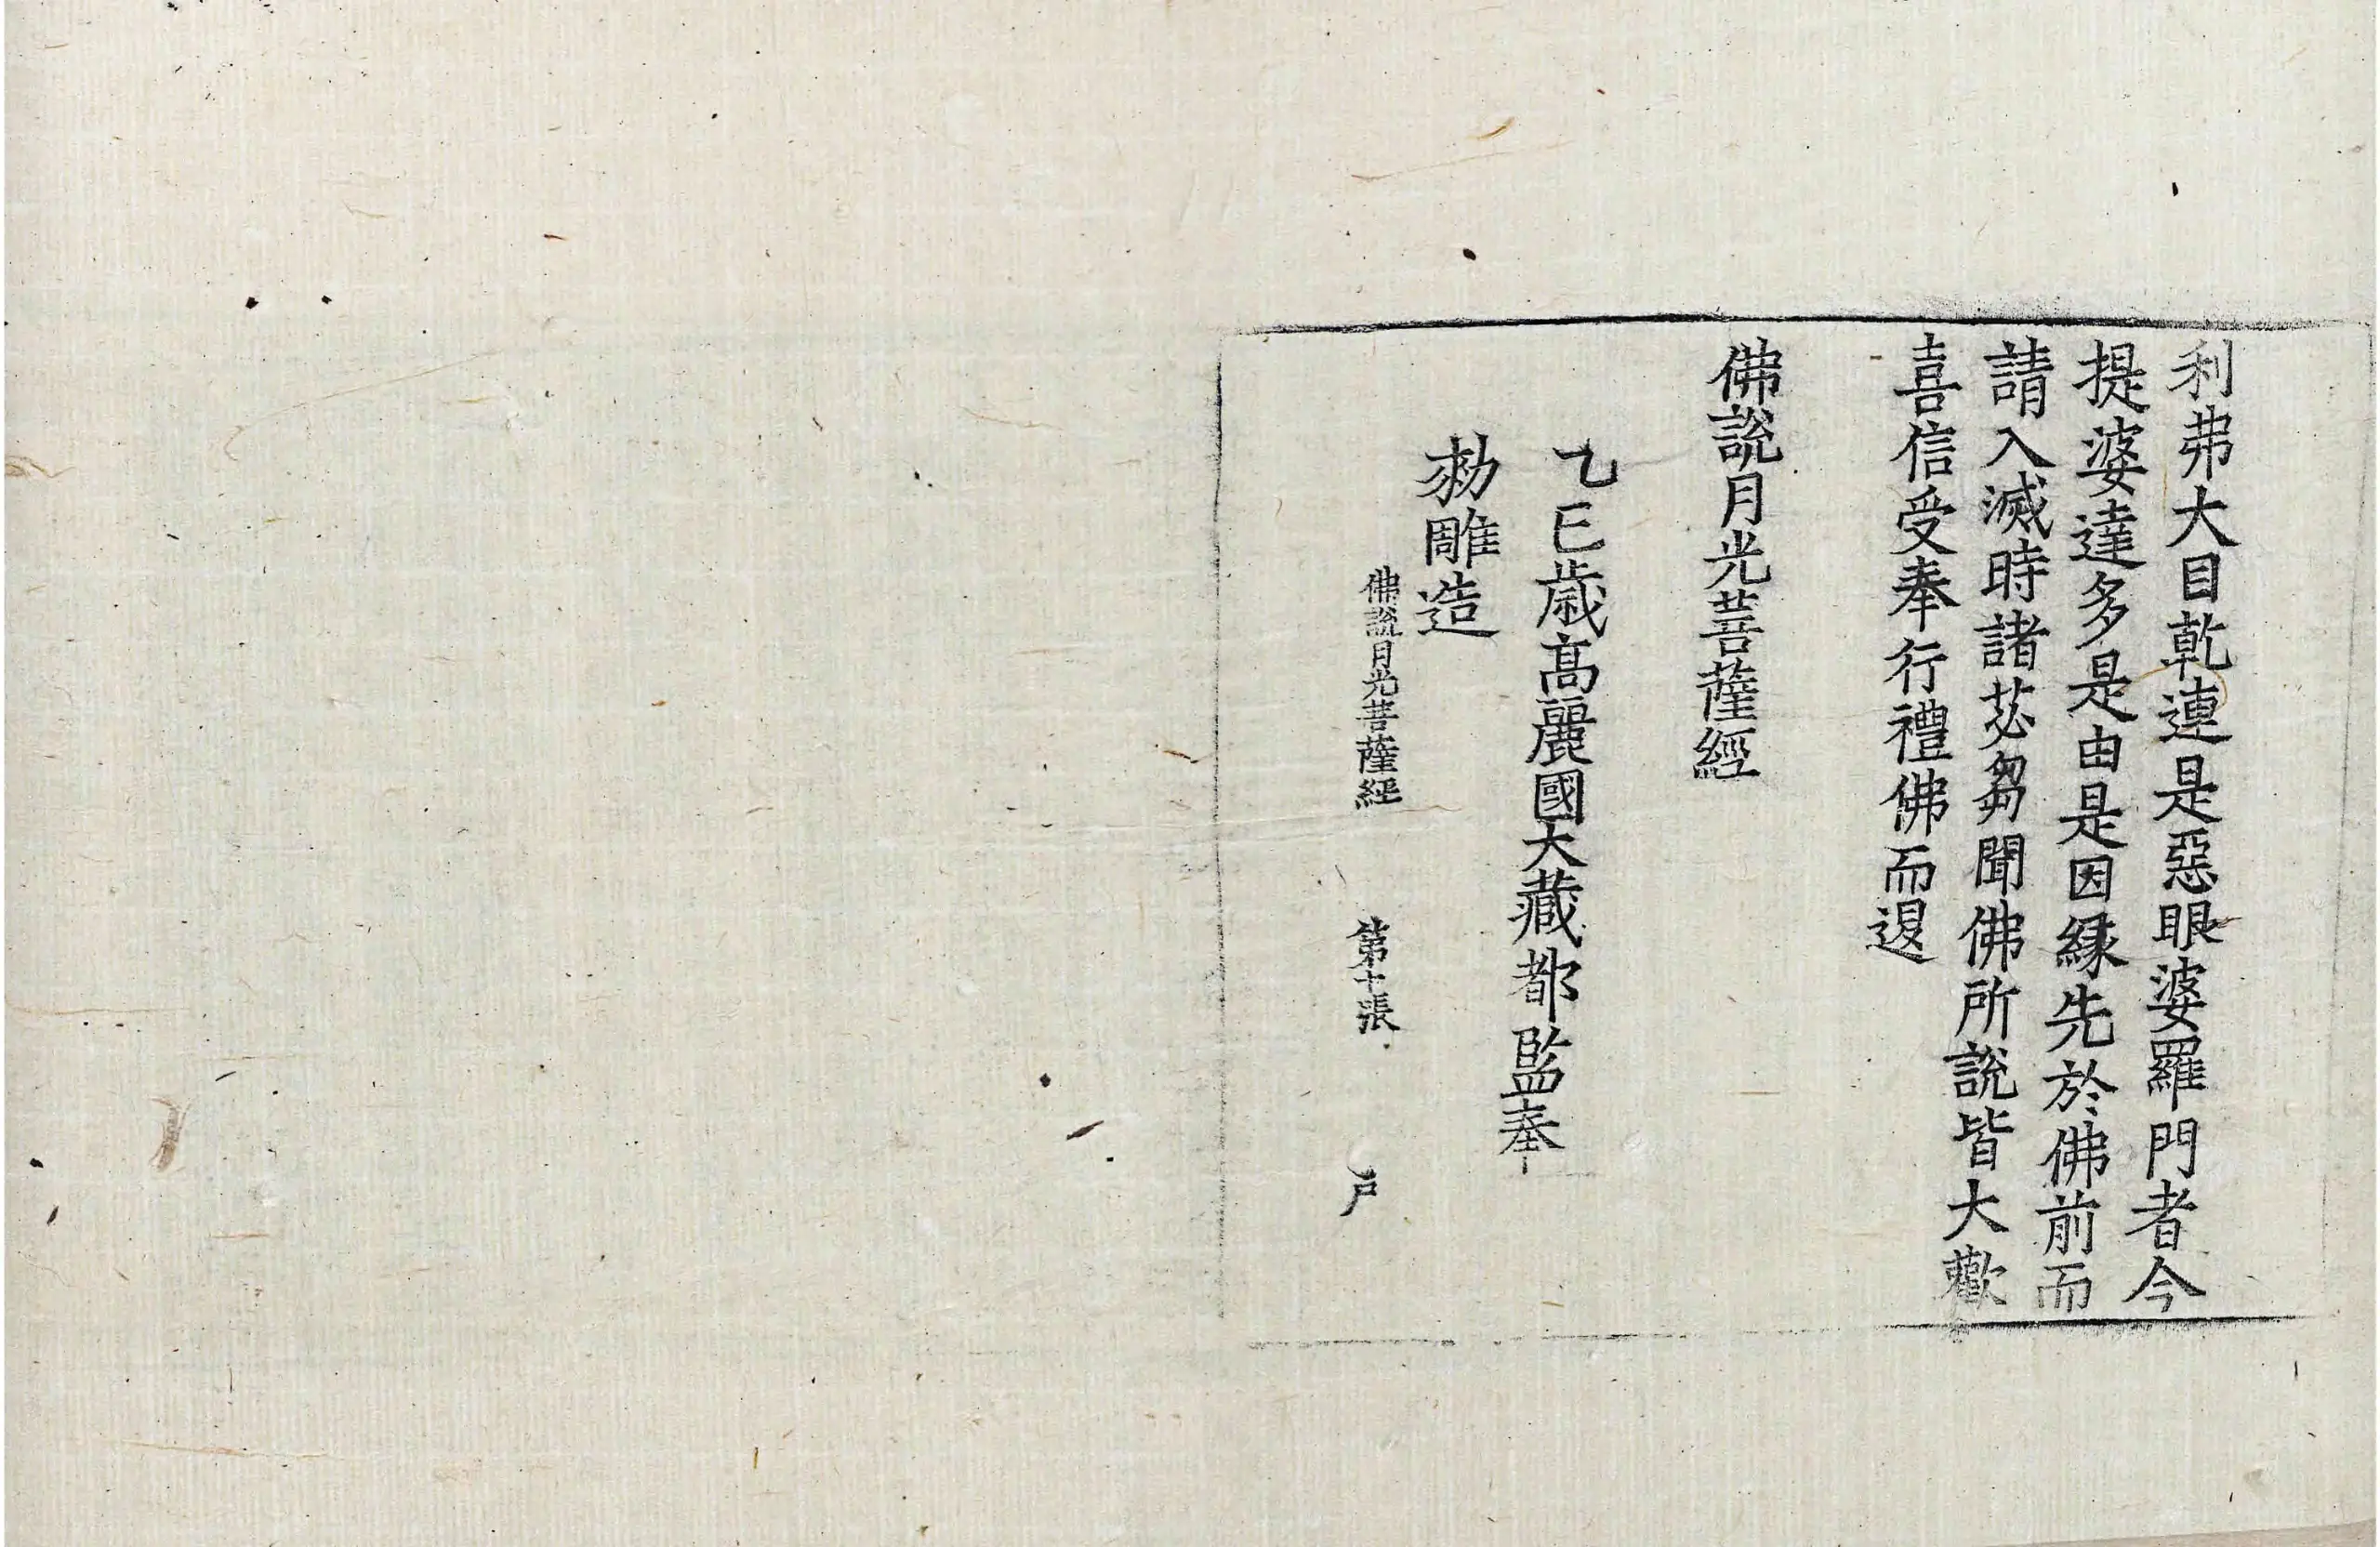 利弗大目乹連是惡眼婆羅門者今
提婆達多是由是因縁先於佛前而
請入滅時諸苾芻聞佛所說皆大歡
喜信受奉行禮佛而退
佛說月光菩薩經
乙巳歳高麗國大藏都監奉
勑雕造
佛說月光菩薩經 第十張 戶